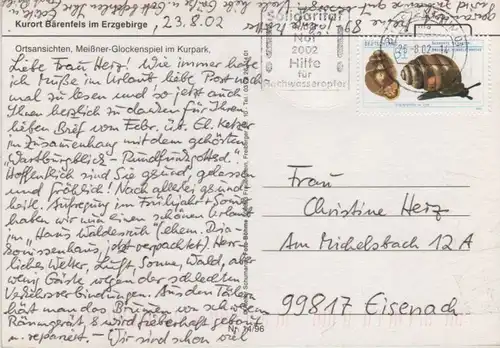 Kurort Bärenfels im Erzgebirge
23.8.02
Ortsansichten, Meißner-Glockenspiel im Kurpark.
Liebe Frau Herz! Wie immer habe
ich Muße im Urlaub liebe Post noch
mal zu lesen und so jetzt auch
Ihnen herzlich zu danken für Ihren
lieben Brief vom Febr. üb. El. Ketzer
im Zusammenhang mit dem gehörten
"Wartburgblick - Rundfunkgottesd."
Hoffentlich sind Sie gesund, gelassen
und fröhlich! Nach allerlei gesund-
heitl. Aufregung im Frühjahr + Sommer
haben wir nun einen schönen Urlaub
im "Haus Waldesruh" (ehem. Dia-
konissenhaus, jetzt verpachtet) Herr-
liches Wetter, Luft, Sonne, Wald, aber
wenig Gäste wegen der schlechten
Verkehrsverbindungen. Aus den Tälern
hört man das Brummen von schweren
Räumgerät, & wird fieberhaft gebaut
u. repariert. - Wir sind schon viel
Nr. 14/96
Solidarität
in der
Not
2002
Hilfe
für
Hochwasseropfer
26.8.02
Frau
Christine Herz
Am Michelsbach 12 A
99817 Eisenach